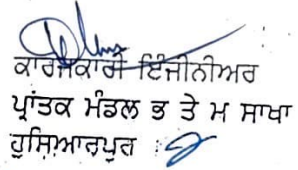 ਕਾਰਜਕਾਰੀ ਇੰਜੀਨੀਅਰ
ਪ੍ਰਾਂਤਕ ਮੰਡਲ ਭ ਤੇ ਮ ਸਾਖਾ
ਹੁਸ਼ਿਆਰਪੁਰ :